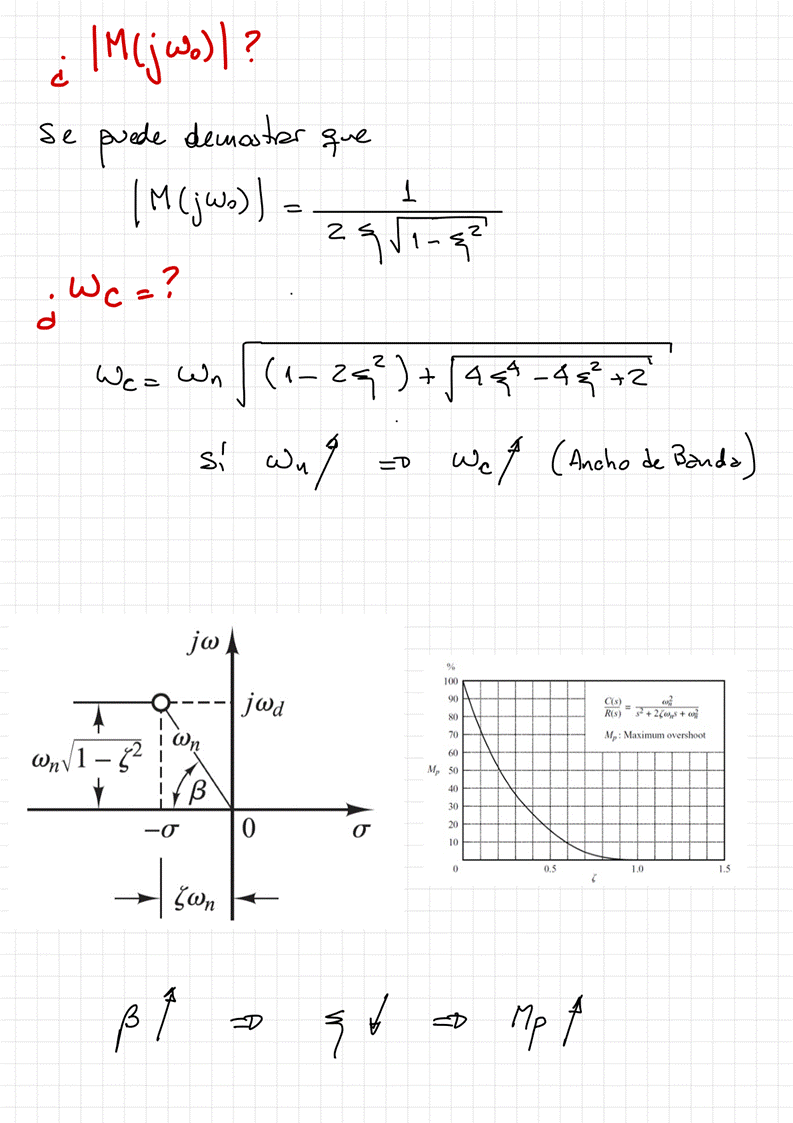 ¿ |M(jω₀)| ?
Se puede demostrar que
|M(jω₀)| = 1 / (2 ξ √(1 - ξ²))
¿ ωc = ?
ωc = ωn √((1 - 2ξ²) + √(4ξ⁴ - 4ξ² + 2))
Si ωn ↑ ⇒ ωc ↑ (Ancho de Banda)
jω
jωd
ωn√(1 - ζ²)
ωn
β
-σ 0 σ
ζωn
%
100
90
80
70
60
Mp 50
40
30
20
10
0 0.5 1.0 1.5
ζ
C(s)/R(s) = ωn² / (s² + 2ζωns + ωn²)
Mp: Maximum overshoot
β ↑ ⇒ ξ ↓ ⇒ Mp ↑